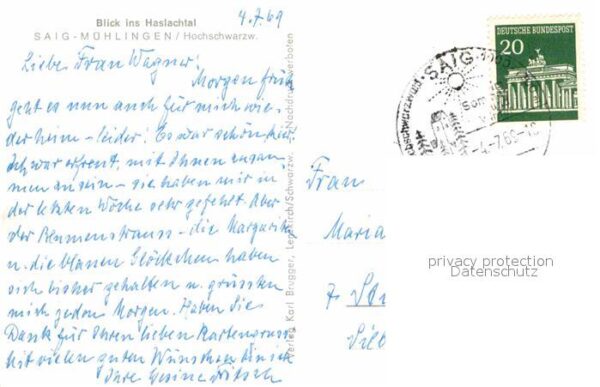 4.7.69
Blick ins Haslachtal
SAIG-MÜHLINGEN / Hochschwarzw.
Liebe Frau Wagner!
Morgen früh
geht es nun auch für mich wie-
der heim – leider! Es war schön hier!
Ich war erfreut, mit Ihnen zusam-
men zu sein – sie haben mir in
der letzten Woche sehr gefehlt. Aber
der Blumenstrauss – die Margariten
u. die blauen Glöckchen haben
sich bisher gehalten u. grüssten
mich jeden Morgen. Haben Sie
Dank für Ihren lieben Kartengruss
Mit vielen guten Wünschen bin ich
Ihre
Verlag Karl Brugger, Lenzkirch/Schwarzw. Nachdruck verboten
DEUTSCHE BUNDESPOST
20
SAIG
Hochschwarzwald
-4.-7.69-18
Frau
Maria
7
privacy protection
Datenschutz